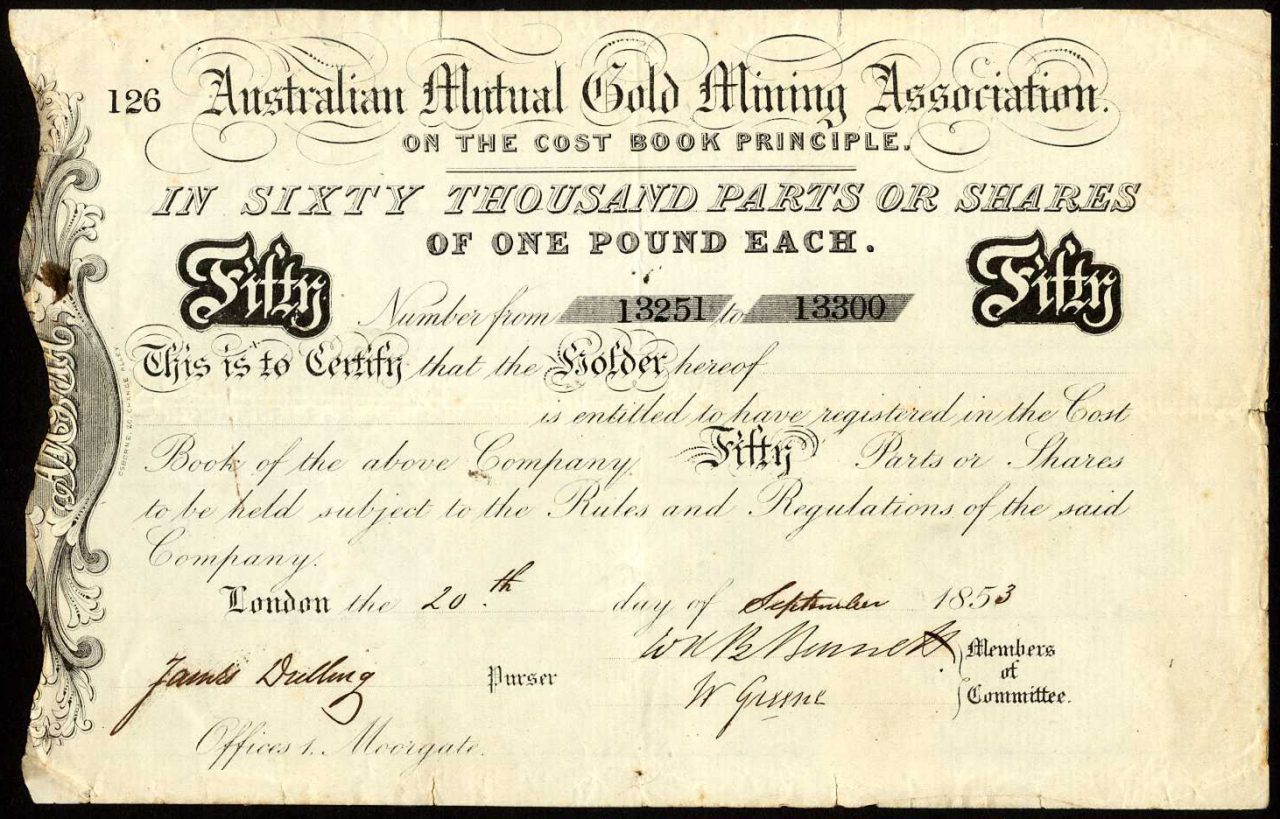 126 Australian Mutual Gold Mining Association.
ON THE COST BOOK PRINCIPLE.
IN SIXTY THOUSAND PARTS OR SHARES
OF ONE POUND EACH.
Fifty Number from 13251 to 13300 Fifty
This is to Certify that the Holder hereof
is entitled to have registered in the Cost
Book of the above Company Fifty Parts or Shares
to be held subject to the Rules and Regulations of the said
Company.
London the 20th day of September 1853
James Purser
W Greene
Members
of
Committee.
Offices 1. Moorgate.